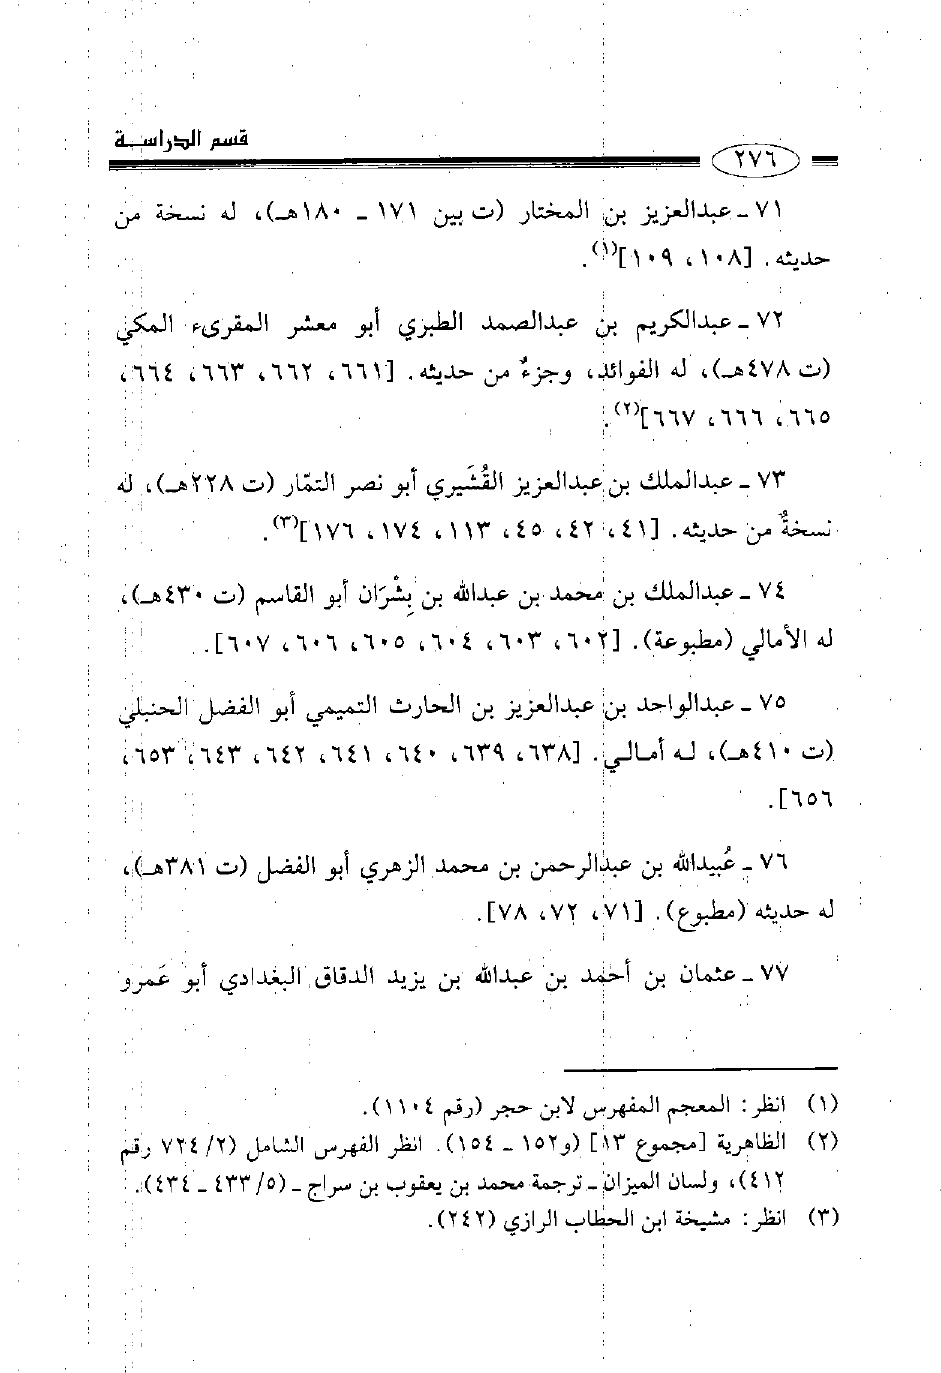 قسم الدراسـة
٢٧٦
٧١ ـ عبدالعزيز بن المختار (ت بين ١٧١ ـ ١٨٠هـ)، له نسخة من
حديثه. [١٠٨، ١٠٩](١).
٧٢ ـ عبدالكريم بن عبدالصمد الطبري أبو معشر المقرىء المكي
(ت ٤٧٨هـ)، له الفوائد، وجزءٌ من حديثه. [٦٦١، ٦٦٢، ٦٦٣، ٦٦٤،
٦٦٥، ٦٦٦، ٦٦٧](٢).
٧٣ ـ عبدالملك بن عبدالعزيز القُشَيري أبو نصر التمّار (ت ٢٢٨هـ)، له
نسخةٌ من حديثه. [٤١، ٤٢، ٤٥، ١١٣، ١٧٤، ١٧٦](٣).
٧٤ ـ عبدالملك بن محمد بن عبدالله بن بِشْرَان أبو القاسم (ت ٤٣٠هـ)،
له الأمالي (مطبوعة). [٦٠٢، ٦٠٣، ٦٠٤، ٦٠٥، ٦٠٦، ٦٠٧].
٧٥ ـ عبدالواحد بن عبدالعزيز بن الحارث التميمي أبو الفضل الحنبلي
(ت ٤١٠هـ)، لـه أمـالـي. [٦٣٨، ٦٣٩، ٦٤٠، ٦٤١، ٦٤٢، ٦٤٣، ٦٥٣،
٦٥٦].
٧٦ ـ عُبيدالله بن عبدالرحمن بن محمد الزهري أبو الفضل (ت ٣٨١هـ)،
له حديثه (مطبوع). [٧١، ٧٢، ٧٨].
٧٧ ـ عثمان بن أحمد بن عبدالله بن يزيد الدقاق البغدادي أبو عَمرو
(١) انظر: المعجم المفهرس لابن حجر (رقم ١١٠٤).
(٢) الظاهرية [مجموع ١٣] (و١٥٢ ـ ١٥٤). انظر الفهرس الشامل (٢/ ٧٢٤ رقم
٤١٢)، ولسان الميزان ـ ترجمة محمد بن يعقوب بن سراج ـ (٥/ ٤٣٣ ـ ٤٣٤).
(٣) انظر: مشيخة ابن الحطاب الرازي (٢٤٢).